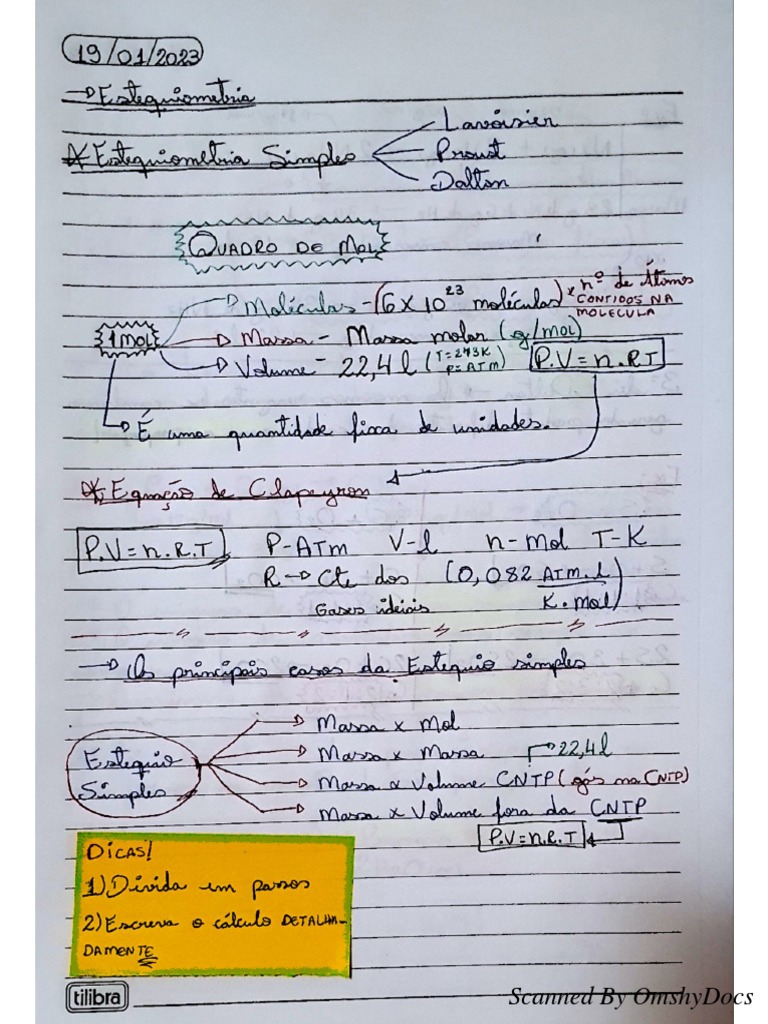 19/01/2023
→ Estequiometria
* Estequiometria Simples
Lavoisier
Proust
Dalton
QUADRO DE MOL
1 MOL
→ Moléculas - (6 X 10²³ moléculas) x nº de Átomos
CONTIDOS NA
MOLECULA
→ Massa - Massa molar (g/mol)
→ Volume - 22,4 l (T=273K
P=ATM) P.V=n.RT
→ É uma quantidade fixa de unidades.
* Equação de Clapeyron
P.V=n.R.T P-ATM V-l n-mol T-K
R → Cte dos (0,082 ATM.l
K.mol)
GASES ideiais
→ Os principais casos da Estequio simples
Estequio
Simples
→ Massa x Mol
→ Massa x Massa
22,4l
→ Massa x Volume CNTP (gás na CNTP)
→ Massa x Volume fora da CNTP
P.V=n.R.T
DICAS!
1) Divida em passos
2) Escreva o cálculo DETALHA-
DAMENTE
tilibra
Scanned By OmshyDocs